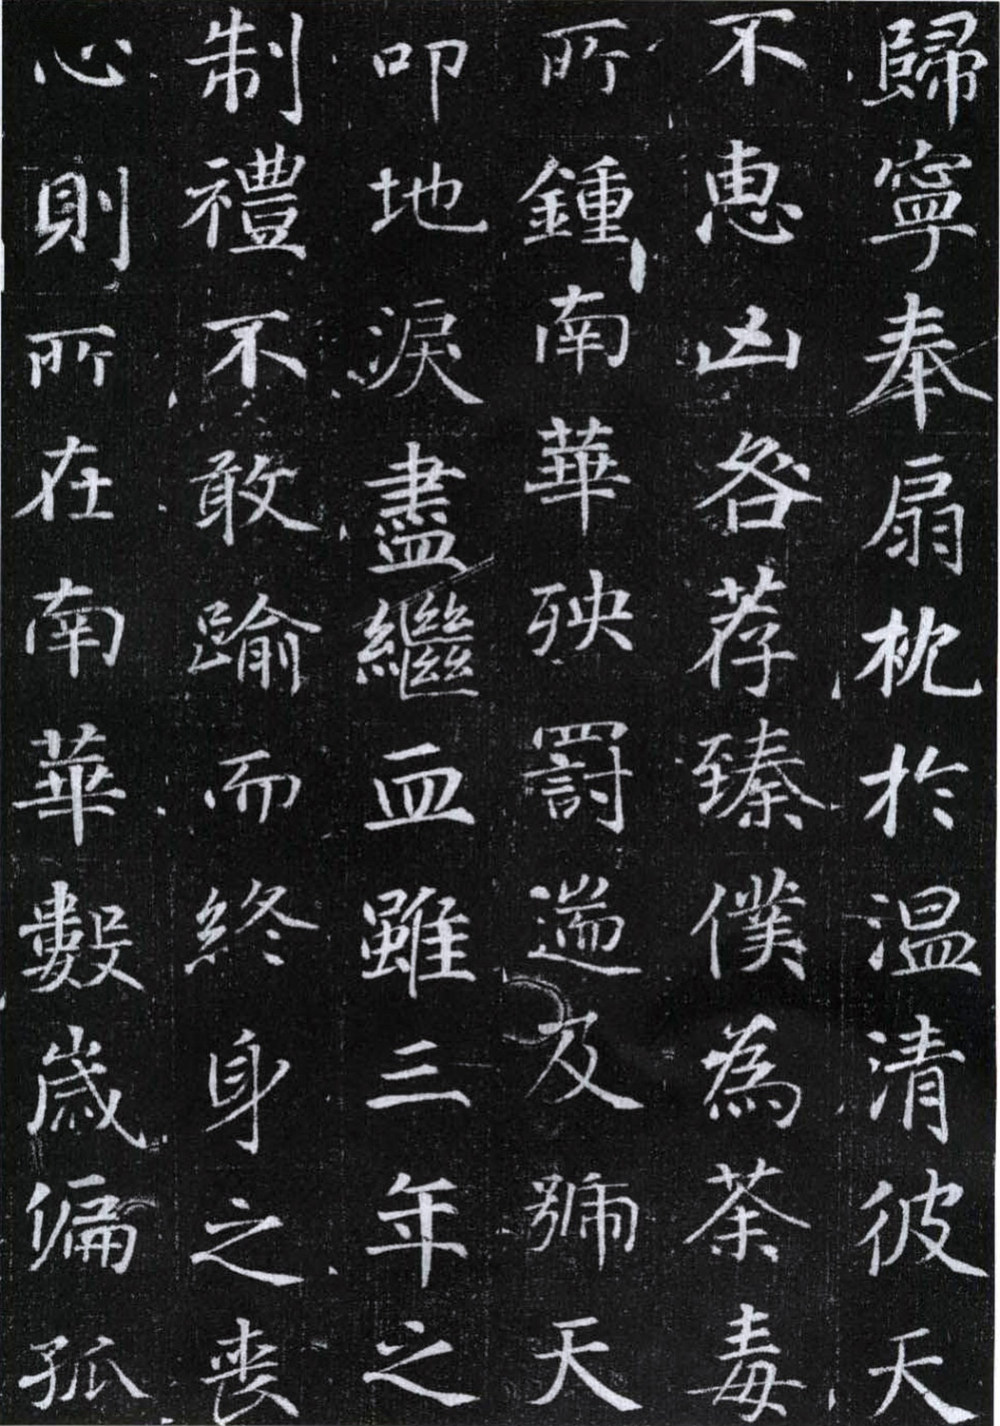 歸寧奉扇枕於温清彼天
不惠凶咎荐臻僕為荼毒
所鍾南華殃罰遄及號天
叩地淚盡繼血雖三年之
制禮不敢踰而終身之喪
心則所在南華數歲偏孤